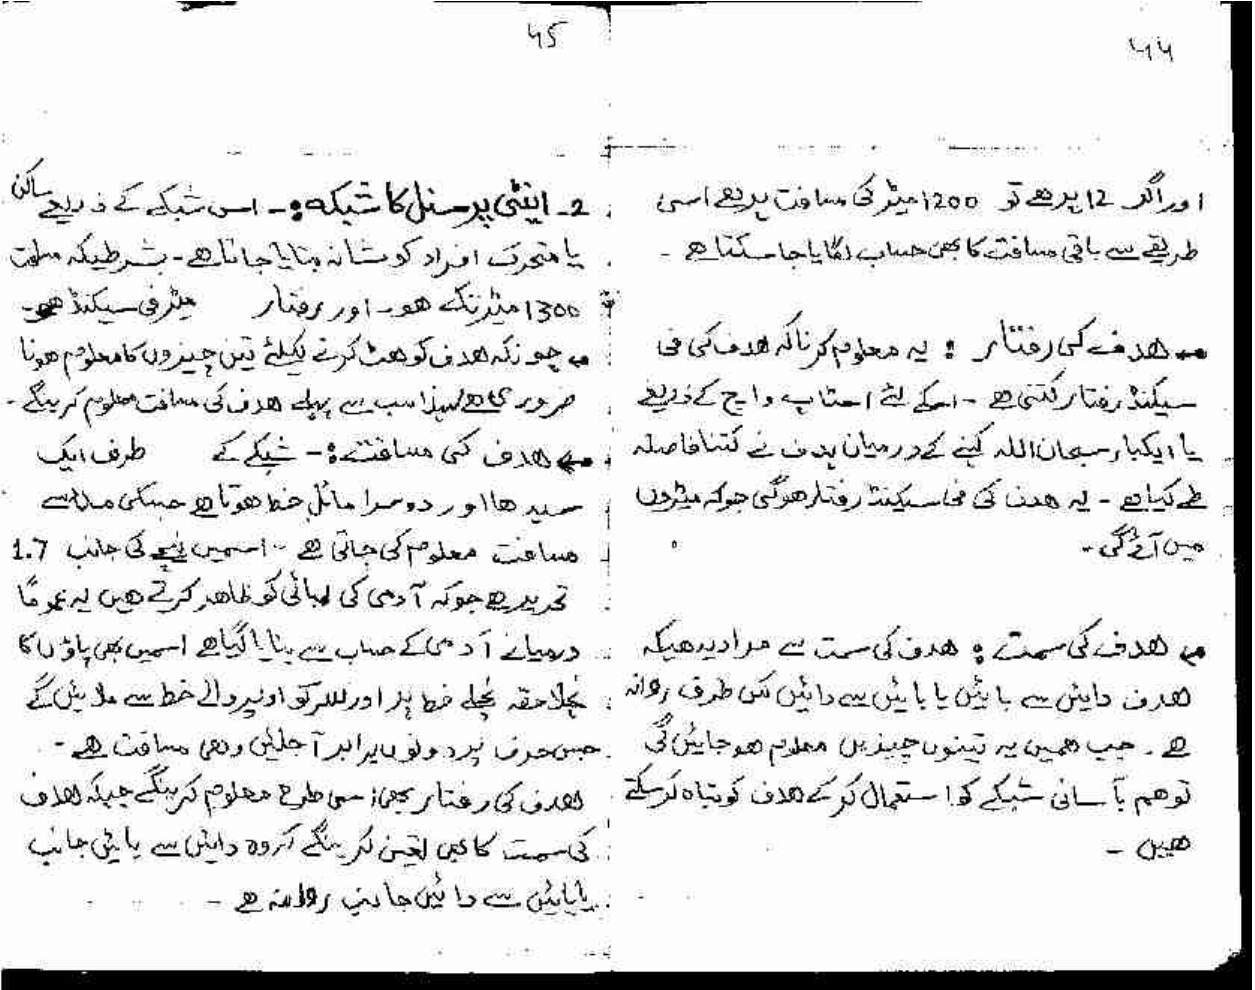 اور اگر 12 پر ھے تو 1200 میٹر کی مسافت پر ھے اسی
طریقے سے باقی مسافت کا بھی حساب لگایا جا سکتا ھے ۔
ھدف کی رفتار : یہ معلوم کرنا کہ ھدف کی فی
سیکنڈ رفتار کتنی ھے ۔ اسکے لئے اسٹاپ واچ کے ذریعے
یا ایکبار سبحان اللہ کہنے کے درمیان ہدف نے کتنا فاصلہ
طے کیا ھے ۔ یہ ھدف کی فی سیکنڈ رفتار ھوگی جو کہ میٹروں
میں آئے گی ۔
ھدف کی سمت : ھدف کی سمت سے مراد یہ ھیکہ
ھدف دایئں سے بایئں یا بایئں سے دایئں کس طرف روانہ
ھے ۔ جب ھمیں یہ تینوں چیزیں معلوم ھو جایئں گی
تو ھم بآسانی شبکے کو استعمال کر کے ھدف کو تباہ کر سکتے
ھیں ۔
2۔ اینٹی پرسنل کا شبکہ :۔ اس شبکے کے ذریعے ساکن
یا متحرک افراد کو نشانہ بنایا جاتا ھے ۔ بشرطیکہ مسافت
1300 میٹر تک ھو ۔ اور رفتار میٹر فی سیکنڈ ھو ۔
چونکہ ھدف کو ھٹ کرنے کیلئے تین چیزوں کا معلوم ھونا
ضروری ھے لہذا سب سے پہلے ھدف کی مسافت معلوم کرینگے ۔
ھدف کی مسافت :۔ شبکے کے طرف ایک
سیدھا اور دوسرا مائل خط ھوتا ھے جسکی مدد سے
مسافت معلوم کی جاتی ھے ۔ اسمیں نیچے کی جانب 1.7
تحریر ھے جو کہ آدمی کی لمبائی کو ظاھر کرتے ھیں یہ عمومًا
درمیانے آدمی کے حساب سے بنایا گیا ھے اسمیں بھی پاؤں کا
نچلا حصہ نچلے خط پر اور سر کو اوپر والے خط سے ملایئں گے
جس حرف پر دونوں برابر آ جایئں وھی مسافت ھے ۔
ھدف کی رفتار بھی اسی طرح معلوم کرینگے جبکہ ھدف
کی سمت کا بھی تعین کرینگے کہ وہ دایئں سے بایئں جانب
یا بایئں سے دایئں جانب روانہ ھے ۔